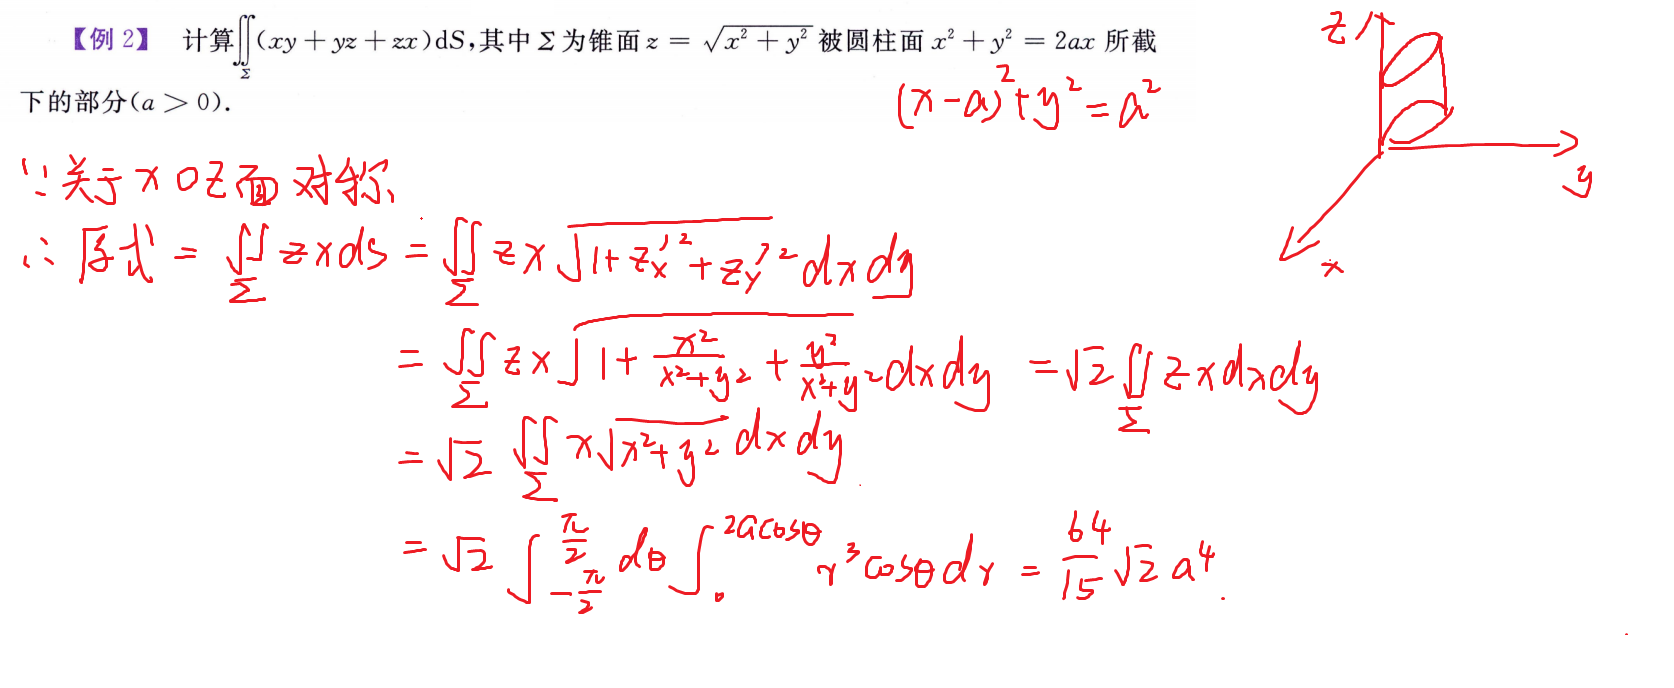 【例 2】 计算∬_Σ(xy + yz + zx)dS,其中 Σ 为锥面 z = √(x² + y²) 被圆柱面 x² + y² = 2ax 所截
下的部分(a > 0).
(x-a)²+y²=a²
z
y
x
∵关于xOz面对称
∴ 原式 = ∬_Σ zxds = ∬_Σ zx√(1+z'ₓ²+z'ᵧ²) dxdy
= ∬_Σ zx√(1+x²/(x²+y²)+y²/(x²+y²)) dxdy = √2 ∬_Σ zxdxdy
= √2 ∬_Σ x√(x²+y²) dxdy
= √2 ∫_{-π/2}^{π/2} dθ ∫_0^{2acosθ} r³cosθdr = 64/15 √2 a⁴.